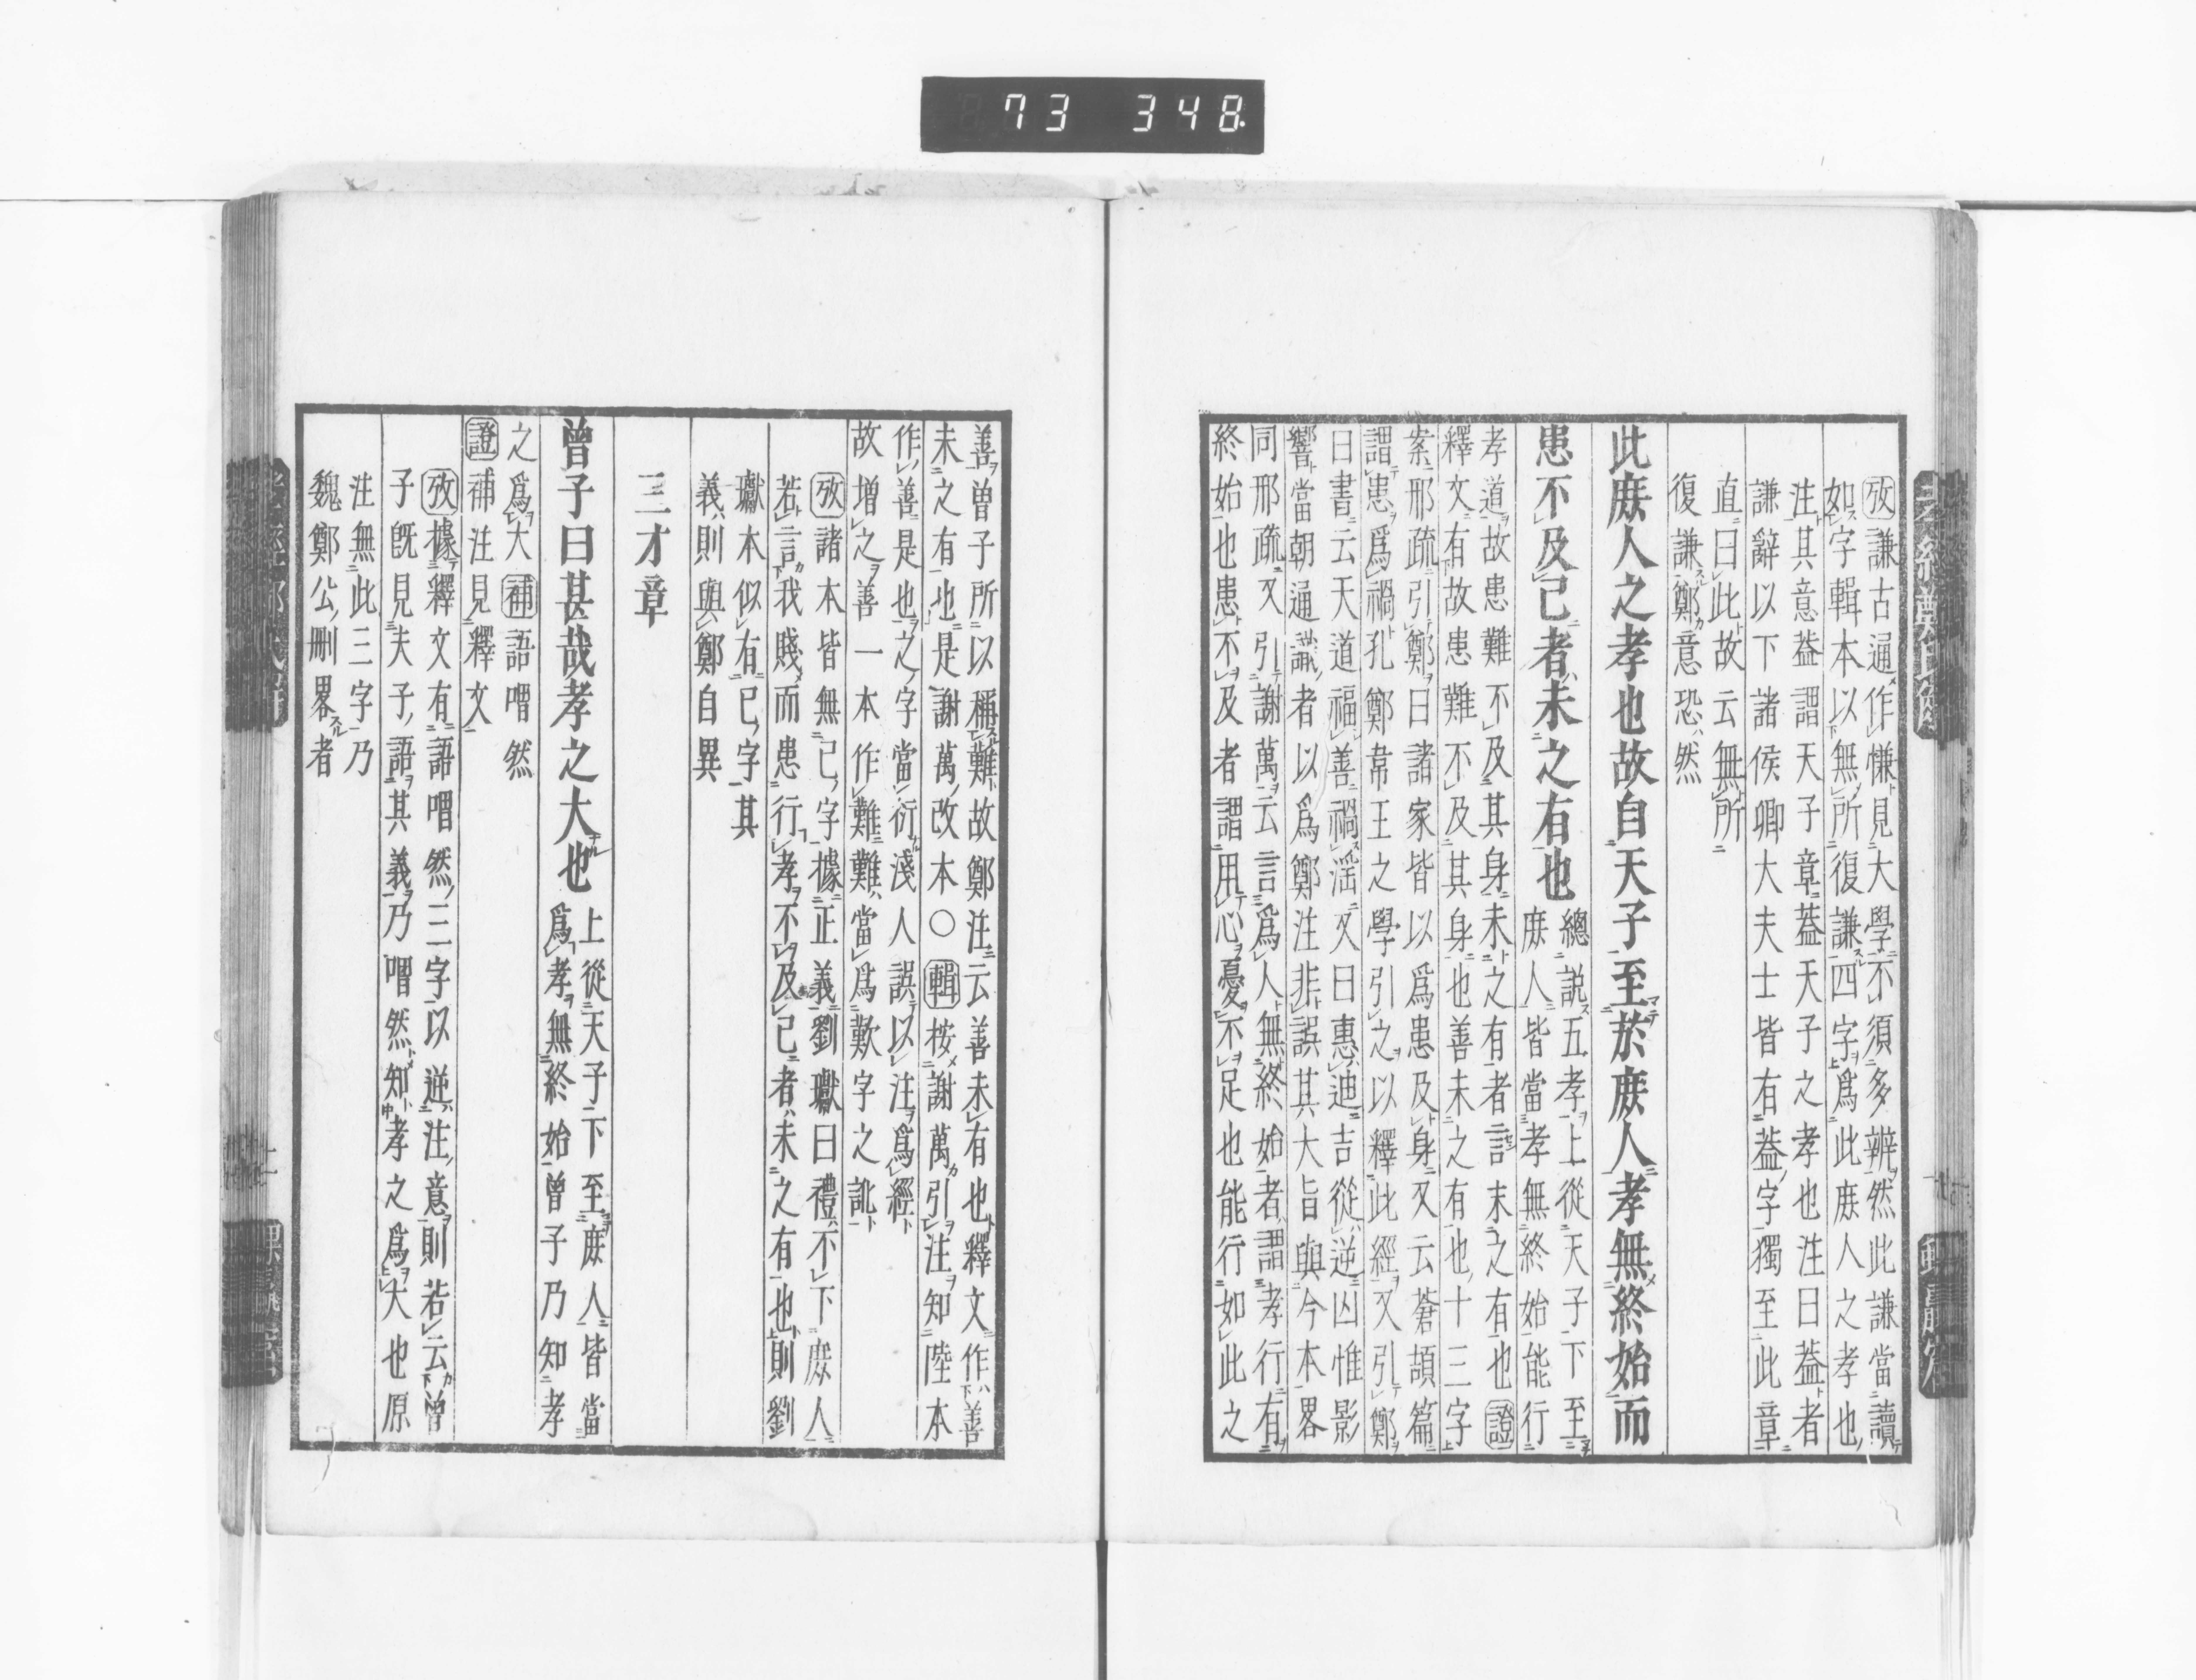 73 348.
攷謙古通作慊見大學不須多辨然此謙當讀
如字輯本以無所復謙四字爲此庶人之孝也
注其意葢謂天子章葢天子之孝也注曰葢者
謙辭以下諸侯卿大夫士皆有葢字獨至此章
直曰此故云無所
復謙鄭意恐然
此庶人之孝也故自天子至於庶人孝無終始而
患不及己者未之有也
總說五孝上從天子下至
庶人皆當孝無終始能行
孝道故患難不及其身未之有者言未之有也證
釋文有故患難不及其身也善未之有也十三字
案邢疏引鄭曰諸家皆以爲患及身又云蒼頡篇
謂患爲禍孔鄭韋王之學引之以釋此經又引鄭
曰書云天道福善禍淫又曰惠迪吉從逆凶惟影
響當朝通識者以爲鄭注非誤其大旨與今本畧
同邢疏又引謝萬云言爲人無終始者謂孝行有
終始也患不及者謂用心憂不足也能行如此之
善曾子所以稱難故鄭注云善未有也釋文作善
未之有也是謝萬改本〇輯按謝萬引注知陸本
作善是也之字當衍淺人誤以注爲經
故增之善一本作難難當爲歎字之訛
攷諸本皆無己字據正義劉瓛曰禮不下庶人
若言我賤而患行孝不及己者未之有也則劉
瓛本似有己字其
義則與鄭自異
三才章
曾子曰甚哉孝之大也
上從天子下至庶人皆當
爲孝無終始曾子乃知孝
之爲大補語喟然
證補注見釋文
攷據釋文有語喟然三字以逆注意則若云曾
子旣見夫子語其義乃喟然知孝之爲大也原
注無此三字乃
魏鄭公刪畧者